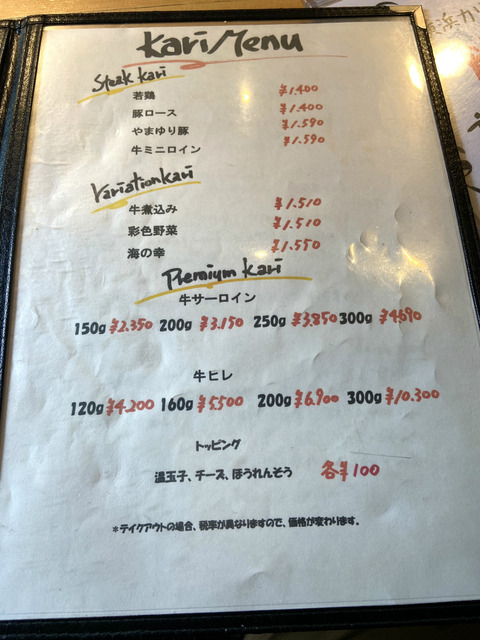 Kari/Menu
Steak kari
若鶏 ¥1.400
豚ロース ¥1.400
やまゆり豚 ¥1.590
牛ミニロイン ¥1.590
Variation kari
牛煮込み ¥1.510
彩色野菜 ¥1.510
海の幸 ¥1.550
Premium kari
牛サーロイン
150g ¥2.350 200g ¥3.150 250g ¥3.850 300g ¥4.690
牛ヒレ
120g ¥4.200 160g ¥5.500 200g ¥6.900 300g ¥10.300
トッピング
温玉子、チーズ、ほうれんそう 各¥100
*テイクアウトの場合、税率が異なりますので、価格が変わります。